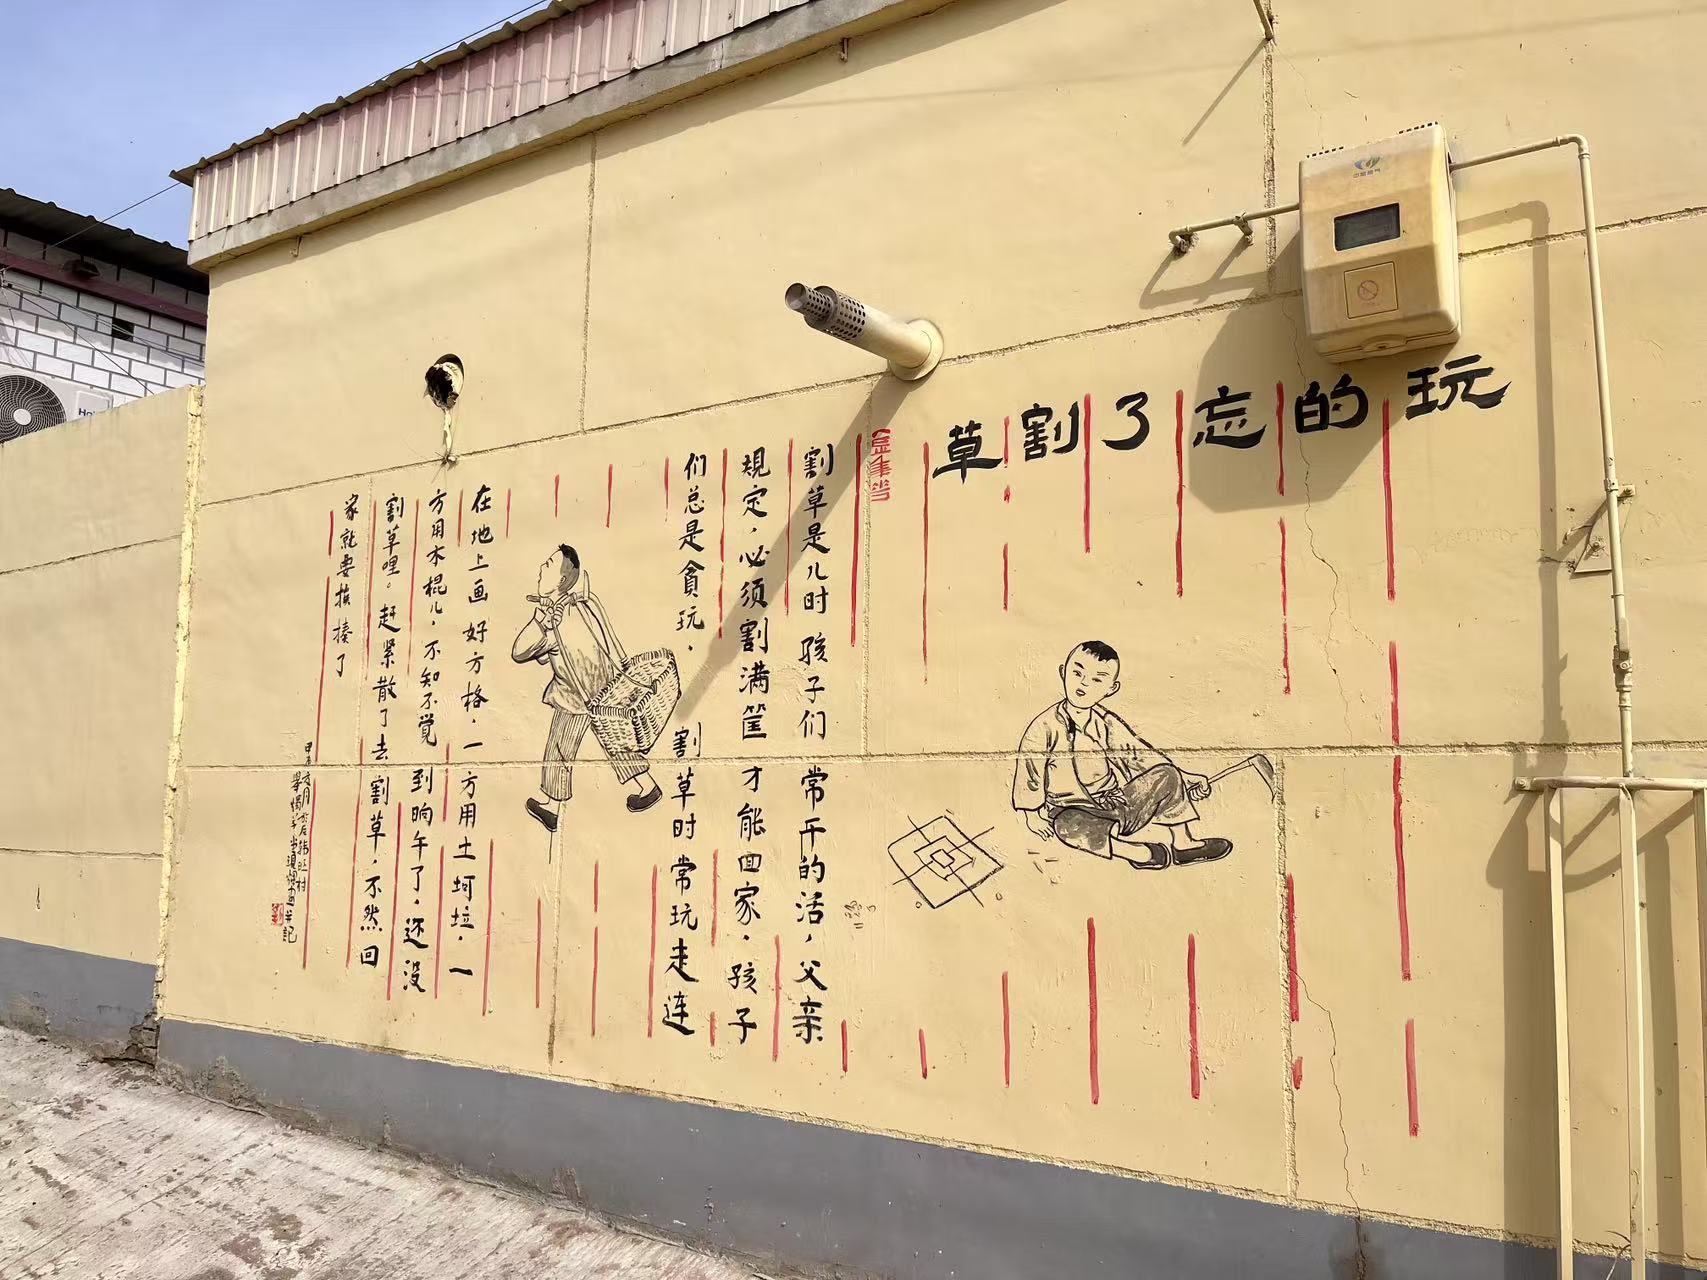 玩的忘了割草
割草是儿时孩子们常干的活，父亲
规定，必须割满筐才能回家，孩子
们总是贪玩．割草时常玩走连
在地上画好方格，一方用土坷垃，一
方用木棍儿，不知不觉到晌午了，还没
割草哩。赶紧散了去割草，不然回
家就要挨揍了